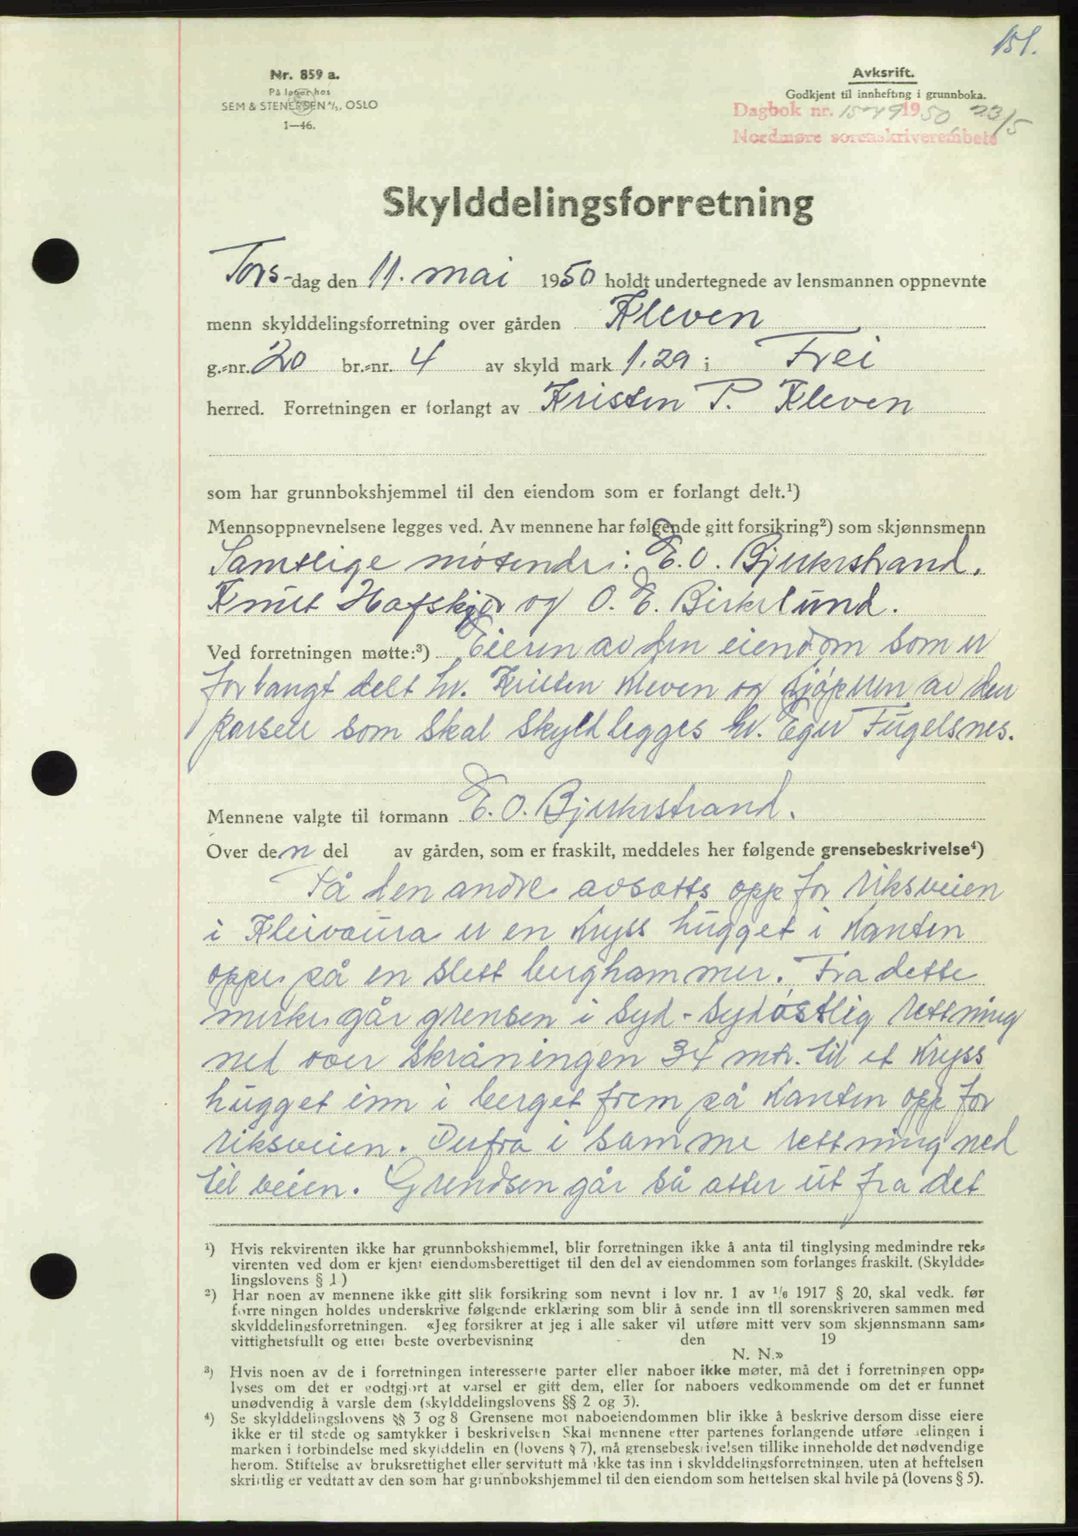 151.
Nr. 859 a.
På lager hos
SEM & STENERSEN A/S, OSLO
1—46.
Avksrift.
Godkjent til innhefting i grunnboka.
Dagbok nr. 1549 1950 23/5
Nordmøre sorenskriverembete
Skylddelingsforretning
Tors-dag den 11. mai 1950 holdt undertegnede av lensmannen oppnevnte
menn skylddelingsforretning over gården Kleven
g.-nr. 20 br.-nr. 4 av skyld mark 1.29 i Frei
herred. Forretningen er forlangt av Kristen P. Kleven
som har grunnbokshjemmel til den eiendom som er forlangt delt.¹)
Mennsoppnevnelsene legges ved. Av mennene har følgende gitt forsikring²) som skjønnsmenn
Samtlige møtende: E. O. Bjerkestrand,
Knut Hafskjær og O. E. Birkelund.
Ved forretningen møtte:³) Eieren av den eiendom som er
forlangt delt hr. Kristen Kleven og kjøperen av den
parsell som skal skyldlegges hr. Egil Fugelsnes.
Mennene valgte til formann E. O. Bjerkestrand.
Over den del av gården, som er fraskilt, meddeles her følgende grensebeskrivelse⁴)
På den andre avsatts opp for riksveien
i Kleivaura er en kryss hugget i kanten
oppe på en slett berghammer. Fra dette
merke går grensen i syd-sydøstlig rettning
ned over skråningen 34 mtr. til et kryss
hugget inn i berget frem på kanten opp for
riksveien. Derfra i samme rettning ned
til veien. Grendsen går så atter ut fra det
¹) Hvis rekvirenten ikke har grunnbokshjemmel, blir forretningen ikke å anta til tinglysing medmindre rek-
virenten ved dom er kjent eiendomsberettiget til den del av eiendommen som forlanges fraskilt. (Skyldde-
lingslovens § 1)
²) Har noen av mennene ikke gitt slik forsikring som nevnt i lov nr. 1 av 1/6 1917 § 20, skal vedk. før
forretningen holdes underskrive følgende erklæring som blir å sende inn til sorenskriveren sammen med
skylddelingsforretningen. «Jeg forsikrer at jeg i alle saker vil utføre mitt verv som skjønnsmann sam-
vittighetsfullt og etter beste overbevisning den 19
N. N.»
³) Hvis noen av de i forretningen interesserte parter eller naboer ikke møter, må det i forretningen opp-
lyses om det er godtgjort at varsel er gitt dem, eller for naboers vedkommende om det er funnet
unødvendig å varsle dem (skylddelingslovens §§ 2 og 3).
⁴) Se skylddelingslovens §§ 3 og 8 Grensene mot naboeiendommen blir ikke å beskrive dersom disse eiere
ikke er til stede og samtykker i beskrivelsen Skal mennene etter partenes forlangende utføre delingen i
marken i forbindelse med skylddelingen (lovens § 7), må grensebeskrivelsen tillike inneholde det nødvendige
herom. Stiftelse av bruksrettighet eller servitutt må ikke tas inn i skylddelingsforretningen, uten at heftelsen
skriftlig er vedtatt av den som har grunnbokshjemmel til den eiendom som heftelsen skal hvile på (lovens § 5).